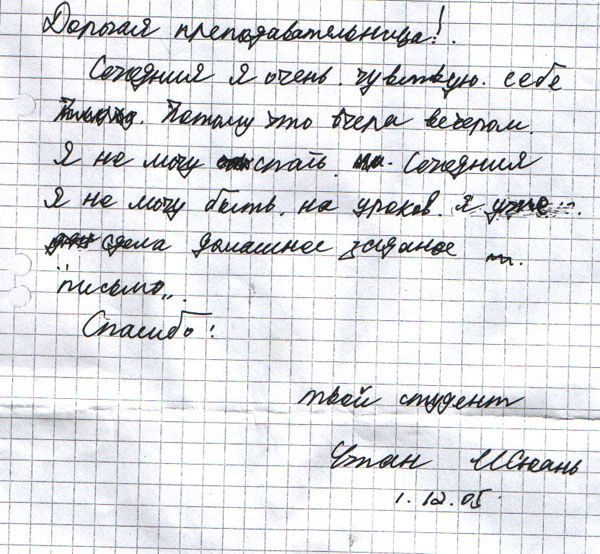 Дорогая преподавательница!.
Сегодния я очень. чувствую. себе
Потому что вчера вечером.
Я не могу спать. Сегодния
Я не могу быть. на уроков. я уже
сдела домашнее заданое
"письмо„.
Спасибо!
твой студент
Чтан Исюань
1.12.05